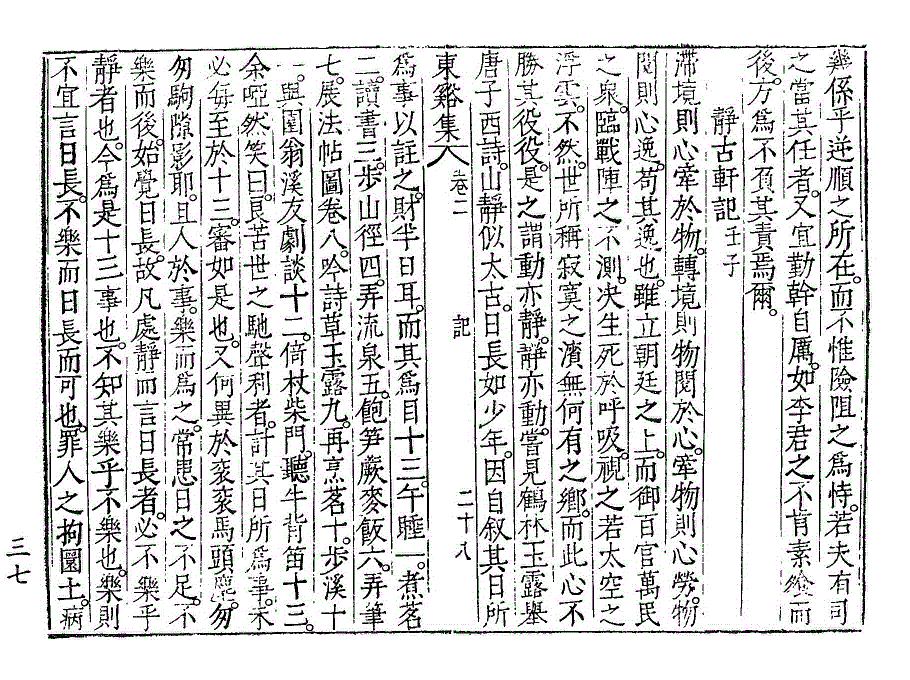 係乎逆順之所在而不惟險阻之爲恃若夫有司
之當其任者又宜勤幹自厲如李君之不肯素飧而
後方爲不負其責焉爾
靜古軒記壬子
滯境則心牽於物轉境則物閱於心牽物則心勞物
閱則心逸苟其逸也雖立朝廷之上而御百官萬民
之衆臨戰陣之不測决生死於呼吸視之若太空之
浮雲不然世所稱寂寞之濱無何有之鄉而此心不
勝其役役是之謂動亦靜靜亦動嘗見鶴林玉露舉
唐子西詩山靜似太古日長如少年因自叙其日所
東谿集 卷二 記 二十八
爲事以註之財半日耳而其爲目十三午睡一煮茗
二讀書三步山徑四弄流泉五飽筍蕨麥飯六弄筆
七展法帖圖卷八吟詩草玉露九再烹茗十步溪十
一與園翁溪友劇談十二倚杖柴門聽牛背笛十三
余啞然笑曰良苦世之馳聲利者計其日所爲事未
必每至於十三審如是也又何異於衮衮馬頭塵匆
匆駒隙影耶且人於事樂而爲之常患日之不足不
樂而後如覺日長故凡處靜而言日長者必不樂乎
靜者也今爲是十三事也不知其樂乎不樂也樂則
不宜言日長不樂而日長而可也罪人之拘圜土病
三七